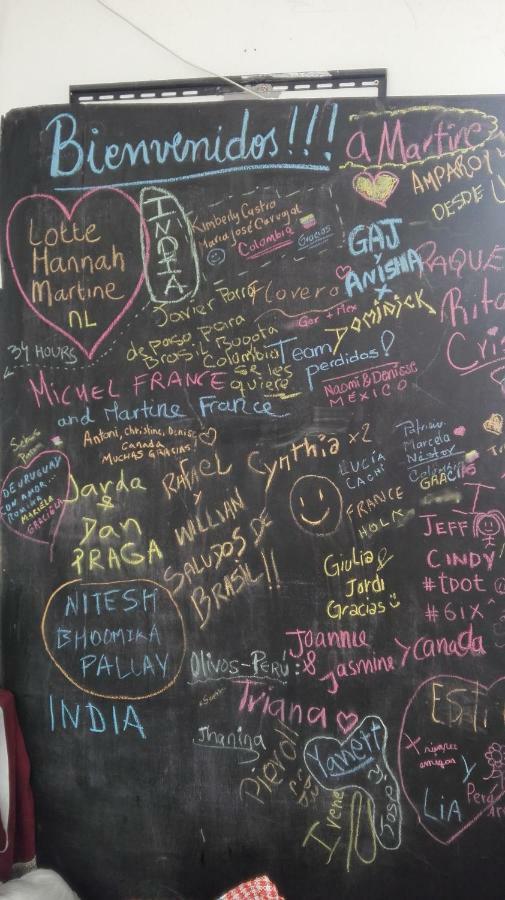 Bienvenidos!!!
a Martine
AMPARO
DESDE
Lotte
Hannah
Martine
NL
INDIA
Kimberly Castro
María José Carvajal
Colombia
Gracias
GAJ
Y
ANISHA
X
DOMINICK
Javier Parra
de paso para
Brasil Bogota
Colombia
se les
quiere
Team
perdidos!
Naomi & Denisse
MEXICO
34 HOURS
MICHEL FRANCE
and Martine France
Antoni, Christine, Denise
Canada
MUCHAS GRACIAS!
DE URUGUAY
CON AMOR...
ROMINA
MARIELA
GRACIELA
Jarda
&
Dan
PRAGA
RAFAEL
Y
WILLIAN
SALUDOS DE
BRASIL!!
Cynthia x2
LUCÍA
CACHI
FRANCE
HOLA
Patricia
Marcela
Néstor
Colombia
GRACIAS
I
JEFF
CINDY
#tDOT
#6IX
Giulia &
Jordi
Gracias
NITESH
BHOOMIKA
PALLAV
INDIA
Joannie
& Jasmine y Canada
Olivos-Perú:
Triana
Jhanina
Pierol
Yanett
Jose y
Irene
y
Lia
Perú